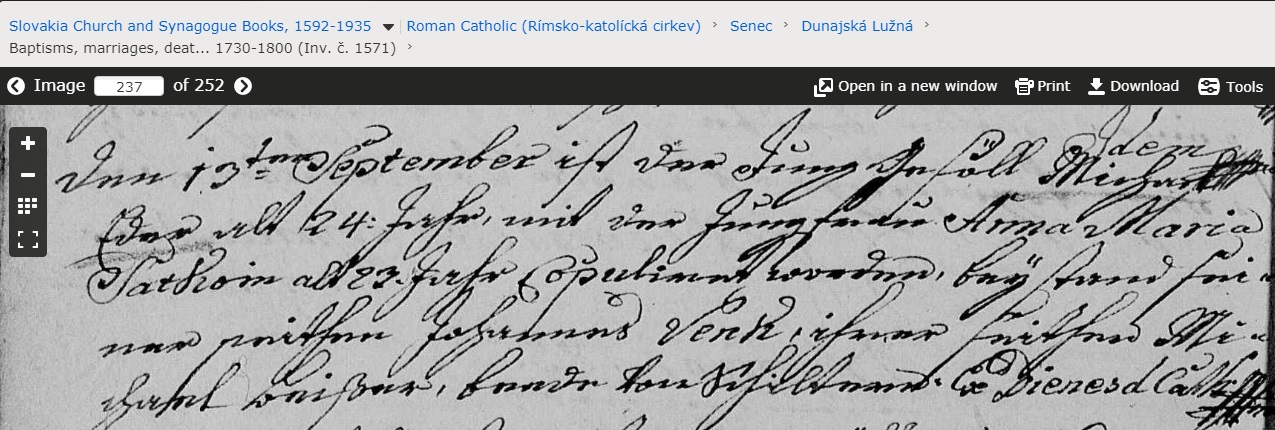 Slovakia Church and Synagogue Books, 1592-1935 Roman Catholic (Rímsko-katolícká cirkev) › Senec › Dunajská Lužná ›
Baptisms, marriages, deat... 1730-1800 (Inv. č. 1571) ›
Image 237 of 252 Open in a new window Print Download Tools
Idem
den 13ten September ist der Jung Gesöll Michael
Eder alt 24: Jahr, mit der Jungfrau Anna Maria
alt 23. Jahr Copuliret worden, beÿ stand sei-
ner seithen Johannes Venk, ihrer seithen Mi-
chael Weißer, beede von Schiltern.